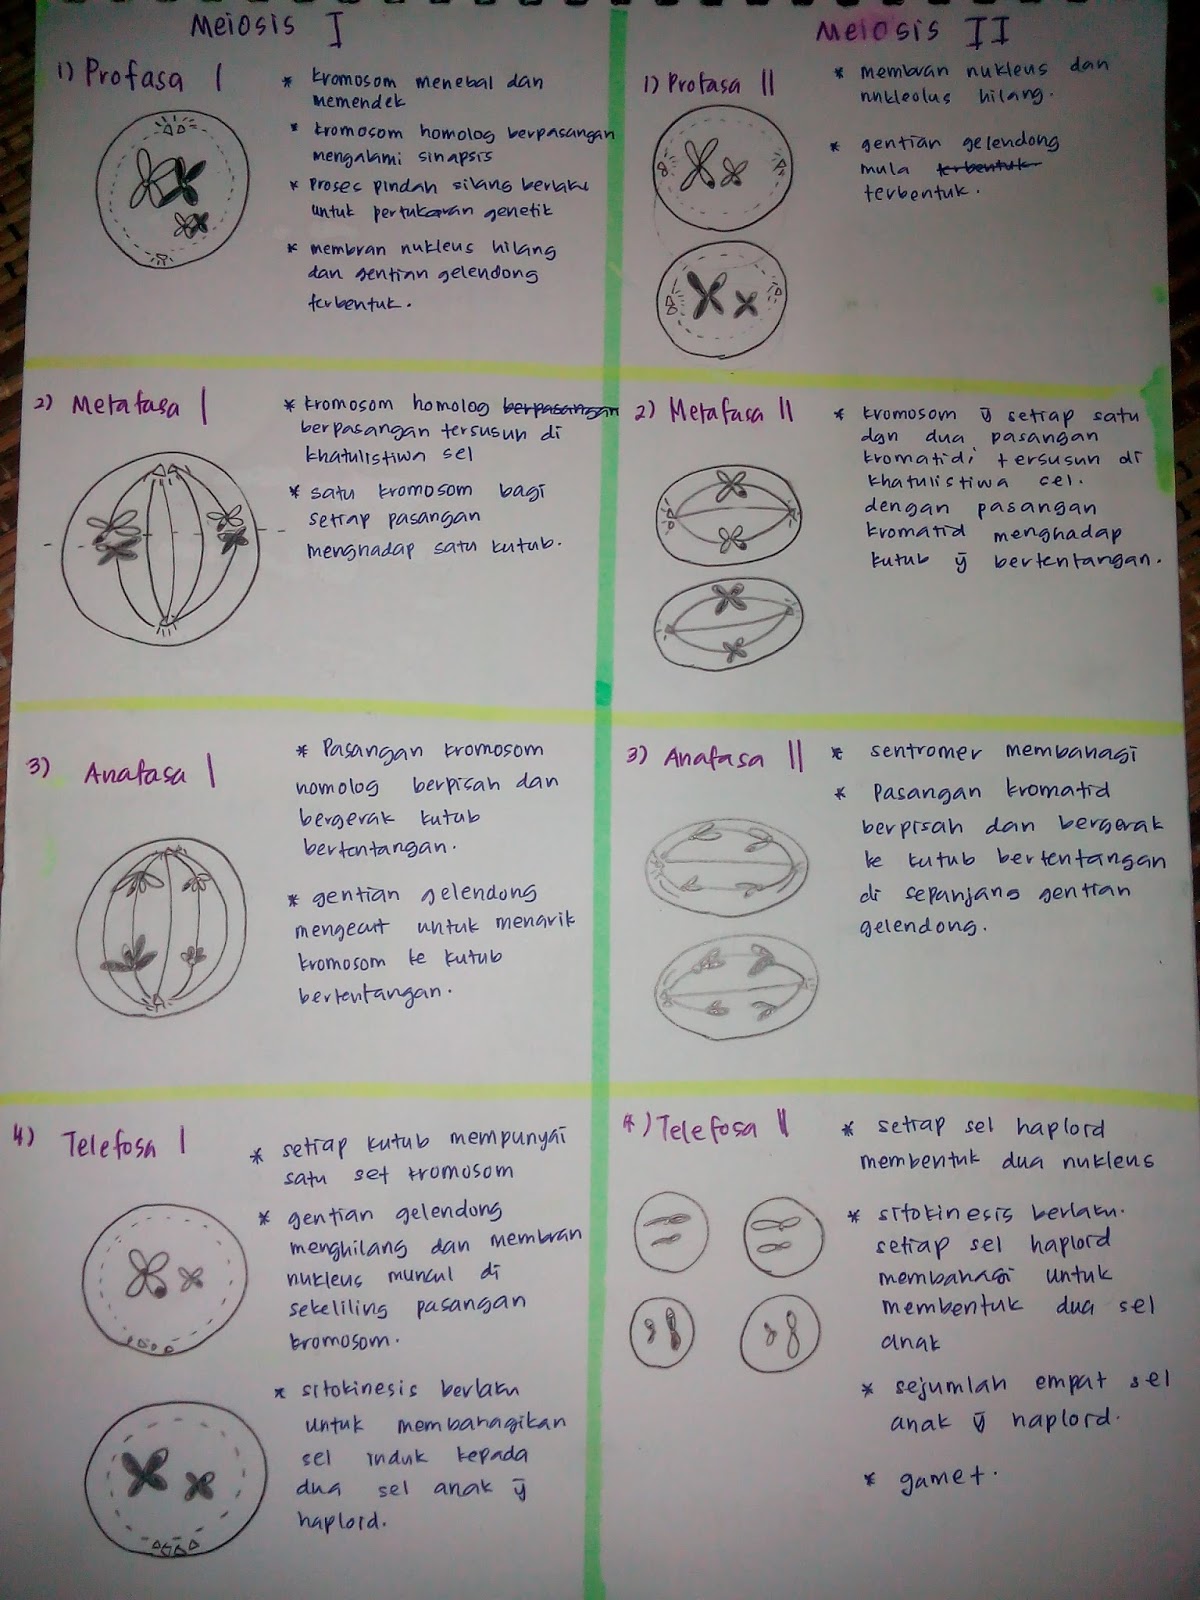 Meiosis I
1) Profasa I
* kromosom menebal dan
memendek
* kromosom homolog berpasangan
mengalami sinapsis
* Proses pindah silang berlaku
untuk pertukaran genetik
* membran nukleus hilang
dan gentian gelendong
terbentuk.
2) Metafasa I
* kromosom homolog berpasangan
berpasangan tersusun di
khatulistiwa sel
* satu kromosom bagi
setiap pasangan
menghadap satu kutub.
3) Anafasa I
* Pasangan kromosom
homolog berpisah dan
bergerak kutub
bertentangan.
* gentian gelendong
mengecut untuk menarik
kromosom ke kutub
bertentangan.
4) Telefosa I
* setiap kutub mempunyai
satu set kromosom
* gentian gelendong
menghilang dan membran
nukleus muncul di
sekeliling pasangan
kromosom.
* sitokinesis berlaku
untuk membahagikan
sel induk kepada
dua sel anak ȳ
haploid.
Meiosis II
1) Profasa II
* membran nukleus dan
nukleolus hilang.
* gentian gelendong
mula terbentuk
terbentuk.
2) Metafasa II
* kromosom ȳ setiap satu
dgn dua pasangan
kromatid, tersusun di
khatulistiwa sel.
dengan pasangan
kromatid menghadap
kutub ȳ bertentangan.
3) Anafasa II
* sentromer membahagi
* Pasangan kromatid
berpisah dan bergerak
ke kutub bertentangan
di sepanjang gentian
gelendong.
4) Telefosa II
* setiap sel haploid
membentuk dua nukleus
* sitokinesis berlaku.
setiap sel haploid
membahagi untuk
membentuk dua sel
anak
* sejumlah empat sel
anak ȳ haploid.
* gamet.